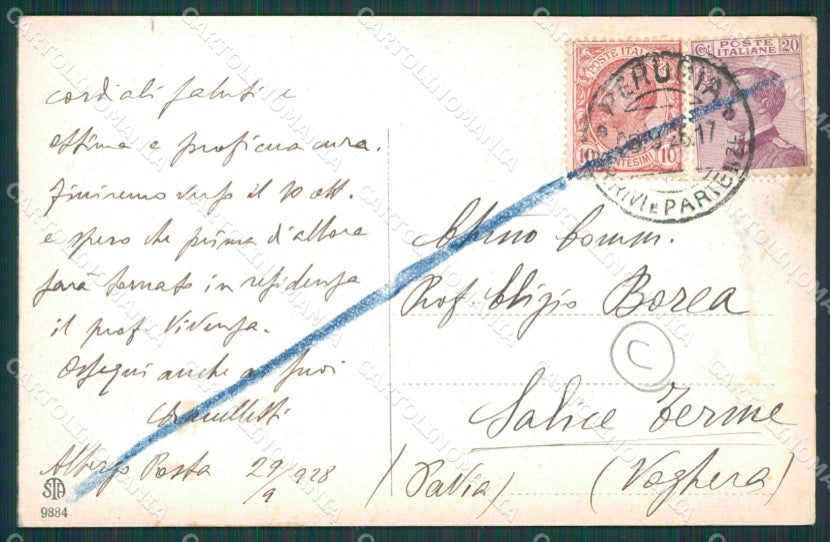 cordiali saluti e
ottima e proficua cura.
Finiremo verso il 10 ott.
e spero che prima d'allora
sarà tornato in residenza
il prof. Vivenza.
Ossequi anche ai suoi
Albergo Posta 29/9 928
STA
9884
POSTE ITALIANE
10 CENTESIMI 10
Cent. POSTE ITALIANE 20
PERUGIA
ARRIVI E PARTENZE
Comm.
Prof. Borea
C
Salice Terme
(Voghera)
(Pavia)
CARTOLINOMANIA